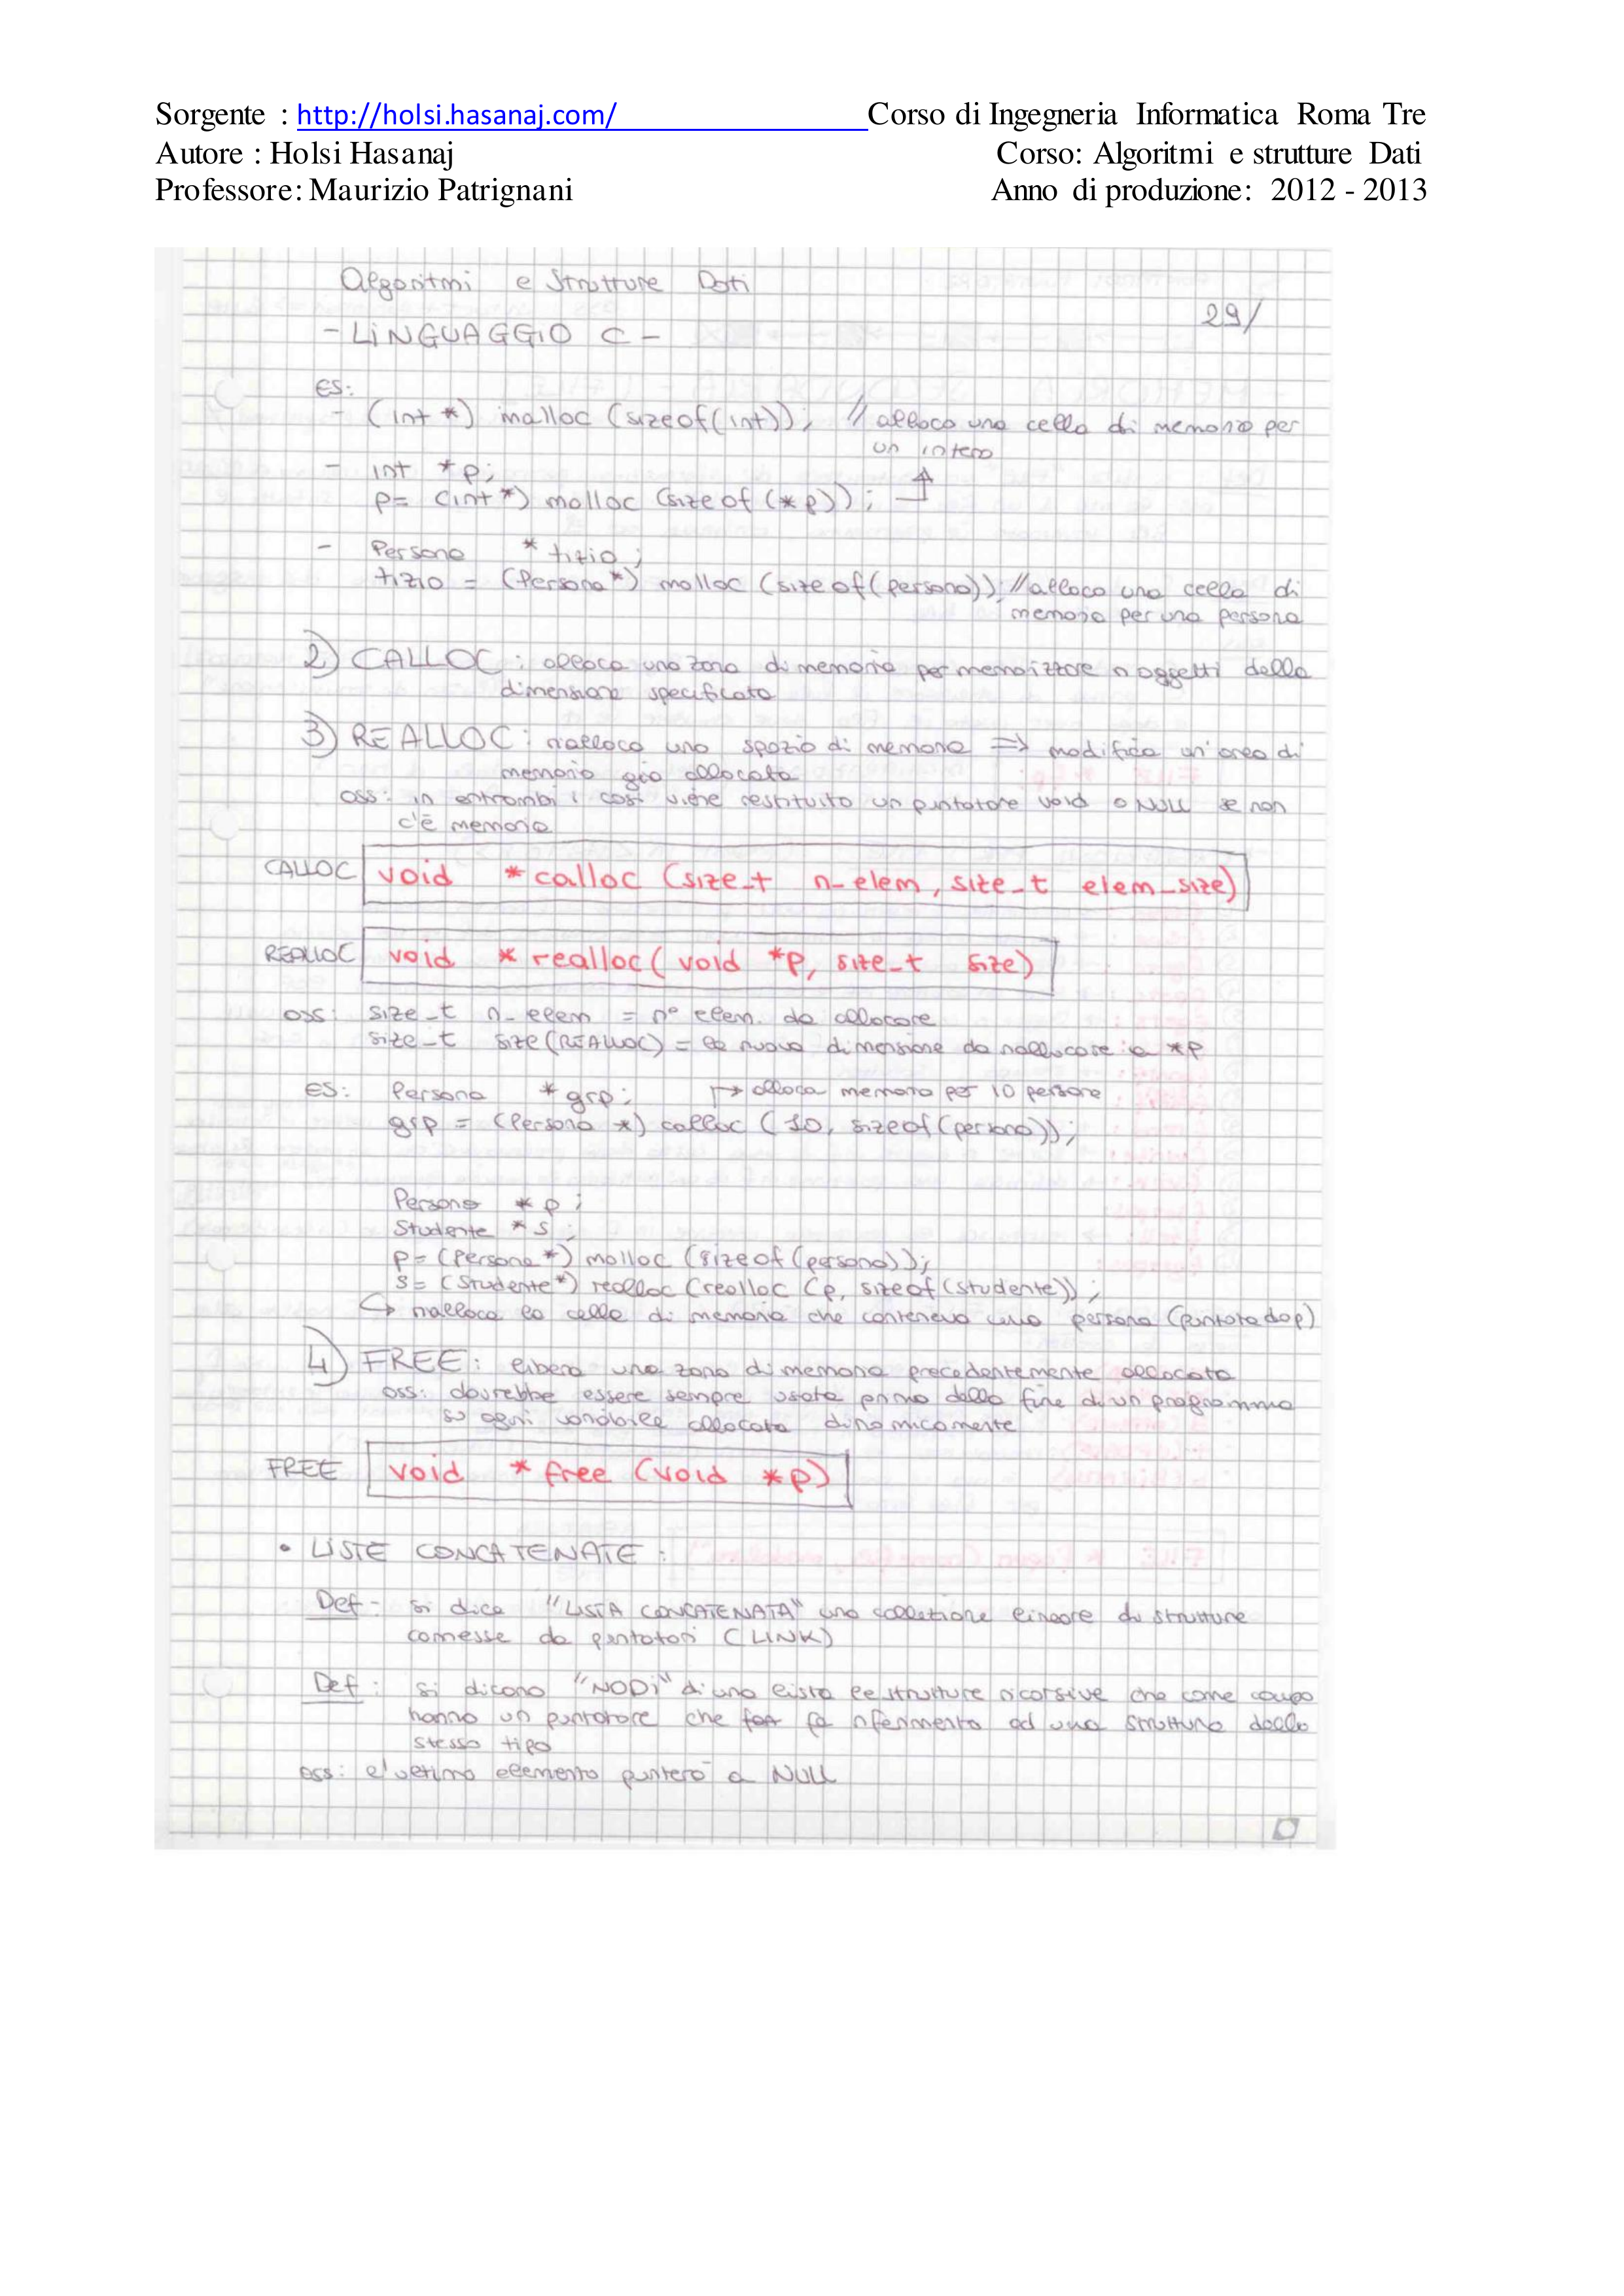 Sorgente : http://holsi.hasanaj.com/ Corso di Ingegneria Informatica Roma Tre
Autore : Holsi Hasanaj Corso: Algoritmi e strutture Dati
Professore: Maurizio Patrignani Anno di produzione: 2012 - 2013
Algoritmi e Strutture Dati
29/
- LINGUAGGIO C -
es:
- (int *) malloc (sizeof(int)); // alloco una cella di memoria per
un intero
- int *p;
p= (int *) malloc (sizeof (*p));
- Persona * tizio;
tizio = (Persona*) malloc (sizeof(persona)); // alloco una cella di
memoria per una persona
2) CALLOC: alloca una zona di memoria per memorizzare n oggetti della
dimensione specificata
3) REALLOC: rialloca uno spazio di memoria => modifica un'area di
memoria già allocata
oss: in entrambi i casi viene restituito un puntatore void o NULL se non
c'è memoria
CALLOC void *calloc (size_t n_elem, size_t elem_size)
REALLOC void * realloc( void *p, size_t size)
oss: size_t n_elem = n° elem. da allocare
size_t size (REALLOC) = la nuova dimensione da riallocare a *p
es: Persona * grp; → alloca memoria per 10 persone
grp = (Persona *) calloc (10, sizeof(persona));
Persona * p;
Studente * s;
p= (Persona*) malloc (sizeof(persona));
s= (Studente*) realloc (realloc (p, sizeof(studente));
↳ rialloca la cella di memoria che conteneva una persona (puntata da p)
4) FREE: libera una zona di memoria precedentemente allocata
oss: dovrebbe essere sempre usata prima della fine di un programma
su ogni variabile allocata dinamicamente
FREE void * free (void *p)
• LISTE CONCATENATE:
Def- si dice "LISTA CONCATENATA" una collezione lineare di strutture
connesse da puntatori (LINK)
Def: si dicono "NODI" di una lista le strutture ricorsive che come campo
hanno un puntatore che fa riferimento ad una struttura dello
stesso tipo
oss: l'ultimo elemento punterà a NULL